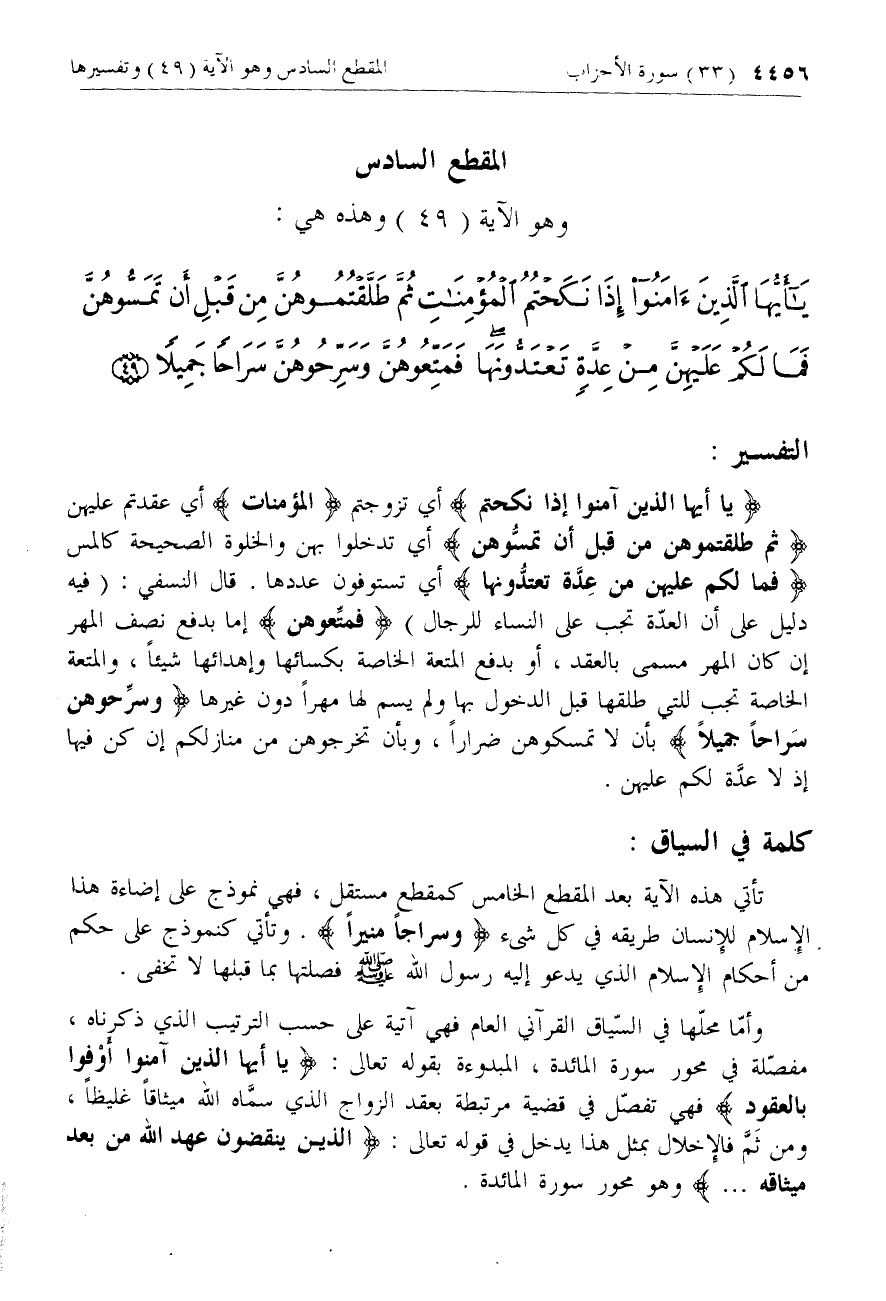 ٤٤٥٦ (٣٣) سورة الأحزاب المقطع السادس وهو الآية (٤٩) وتفسيرها
المقطع السادس
وهو الآية ( ٤٩ ) وهذه هي :
يَٰٓأَيُّهَا ٱلَّذِينَ ءَامَنُوٓا۟ إِذَا نَكَحْتُمُ ٱلْمُؤْمِنَٰتِ ثُمَّ طَلَّقْتُمُوهُنَّ مِن قَبْلِ أَن تَمَسُّوهُنَّ
فَمَا لَكُمْ عَلَيْهِنَّ مِنْ عِدَّةٍ تَعْتَدُّونَهَا ۖ فَمَتِّعُوهُنَّ وَسَرِّحُوهُنَّ سَرَاحًا جَمِيلًا ﴿٤٩﴾
التفسير :
﴿ يا أيها الذين آمنوا إذا نكحتم ﴾ أي تزوجتم ﴿ المؤمنات ﴾ أي عقدتم عليهن
﴿ ثم طلقتموهن من قبل أن تمسُّوهن ﴾ أي تدخلوا بهن والخلوة الصحيحة كالمس
﴿ فما لكم عليهن من عِدَّة تعتدُّونها ﴾ أي تستوفون عددها . قال النسفي : ( فيه
دليل على أن العدّة تجب على النساء للرجال ) ﴿ فمتِّعوهن ﴾ إما بدفع نصف المهر
إن كان المهر مسمى بالعقد ، أو بدفع المتعة الخاصة بكسائها وإهدائها شيئاً ، والمتعة
الخاصة تجب للتي طلقها قبل الدخول بها ولم يسم لها مهراً دون غيرها ﴿ وسرِّحوهن
سَراحاً جميلاً ﴾ بأن لا تمسكوهن ضراراً ، وبأن تخرجوهن من منازلكم إن كن فيها
إذ لا عدَّة لكم عليهن .
كلمة في السياق :
تأتي هذه الآية بعد المقطع الخامس كمقطع مستقل ، فهي نموذج على إضاءة هذا
الإسلام للإنسان طريقه في كل شىء ﴿ وسراجاً منيراً ﴾ . وتأتي كنموذج على حكم
من أحكام الإسلام الذي يدعو إليه رسول الله ﷺ فصلتها بما قبلها لا تخفى .
وأمّا محلّها في السّياق القرآني العام فهي آتية على حسب الترتيب الذي ذكرناه ،
مفصّلة في محور سورة المائدة ، المبدوءة بقوله تعالى : ﴿ يا أيها الذين آمنوا أوْفوا
بالعقود ﴾ فهي تفصّل في قضية مرتبطة بعقد الزواج الذي سمَّاه الله ميثاقاً غليظاً ،
ومن ثَمَّ فالإخلال بمثل هذا يدخل في قوله تعالى : ﴿ الذين ينقضون عهد الله من بعد
ميثاقه ... ﴾ وهو محور سورة المائدة .